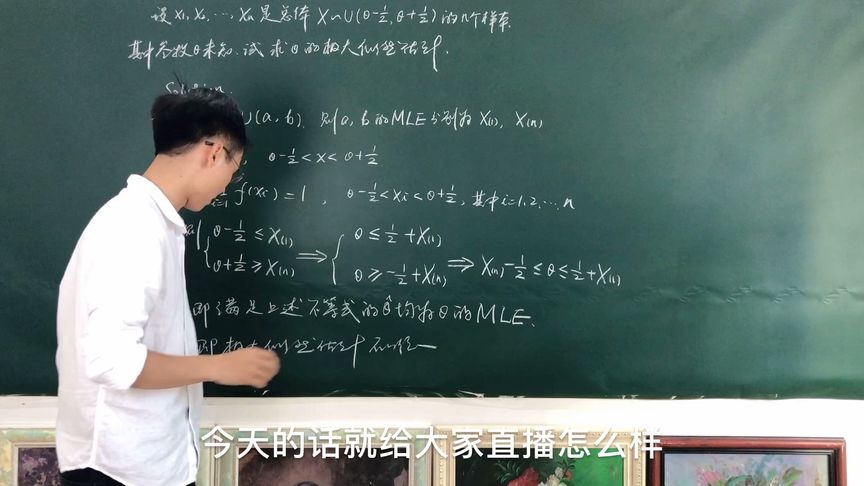 设 X₁, X₂, …, Xn 是总体 X~U(θ-1/2, θ+1/2) 的n个样本.
其中参数θ未知. 试求θ的极大似然估计.
Solution.
U(a, b). 则a, b的MLE分别为 X(1), X(n)
θ-1/2<x<θ+1/2
f(xi)=1, θ-1/2<xi<θ+1/2, 其中i=1,2,…,n
则{ θ-1/2≤X(1) ⟹ { θ≤1/2+X(1)
θ+1/2≥X(n) θ≥-1/2+X(n) ⟹ X(n)-1/2≤θ≤1/2+X(1)
即满足上述不等式的θ̂均为θ的MLE.
即极大似然估计不唯一
今天的话就给大家直播怎么样